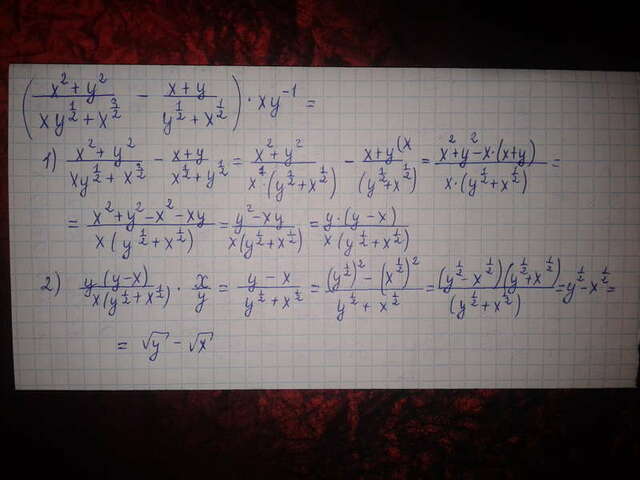 (x²+y² / xy^(1/2)+x^(3/2) − x+y / y^(1/2)+x^(1/2)) · xy⁻¹ =
1) x²+y² / xy^(1/2)+x^(3/2) − x+y / x^(1/2)+y^(1/2) = x²+y² / x¹·(y^(1/2)+x^(1/2)) − x+y^(x / (y^(1/2)+x^(1/2)) = x²+y²−x·(x+y) / x·(y^(1/2)+x^(1/2)) =
= x²+y²−x²−xy / x(y^(1/2)+x^(1/2)) = y²−xy / x(y^(1/2)+x^(1/2)) = y·(y−x) / x(y^(1/2)+x^(1/2))
2) y(y−x) / x(y^(1/2)+x^(1/2)) · x/y = y−x / y^(1/2)+x^(1/2) = (y^(1/2))²−(x^(1/2))² / y^(1/2)+x^(1/2) = (y^(1/2)−x^(1/2))(y^(1/2)+x^(1/2)) / (y^(1/2)+x^(1/2)) = y^(1/2)−x^(1/2) =
= √y − √x